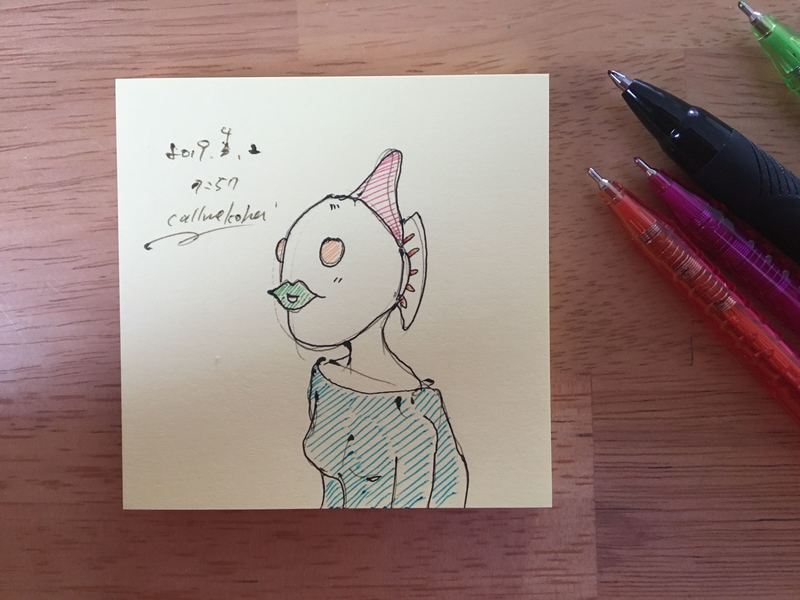 2019.4.2
7:57
callmekohei